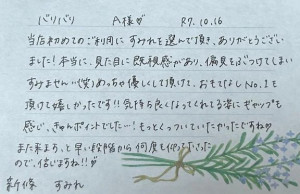 バリバリ A様が R7.10.16
当店初めてのご利用に すみれを選んで頂き、ありがとうござい
ました!本当に、見た目に既視感があり、偏見をぶつけてしまい
すみません…(笑)めっちゃ優しくして頂けて、おもてなしNo.1を
頂けて嬉しかったです!!気持ち良くなってくれてる姿にギャップを
感じ、きゅんポイントでした…!もっとくっついていたかったですね
また来ます、と早い段階から何度も
ので、信じますね!!
新條 すみれ